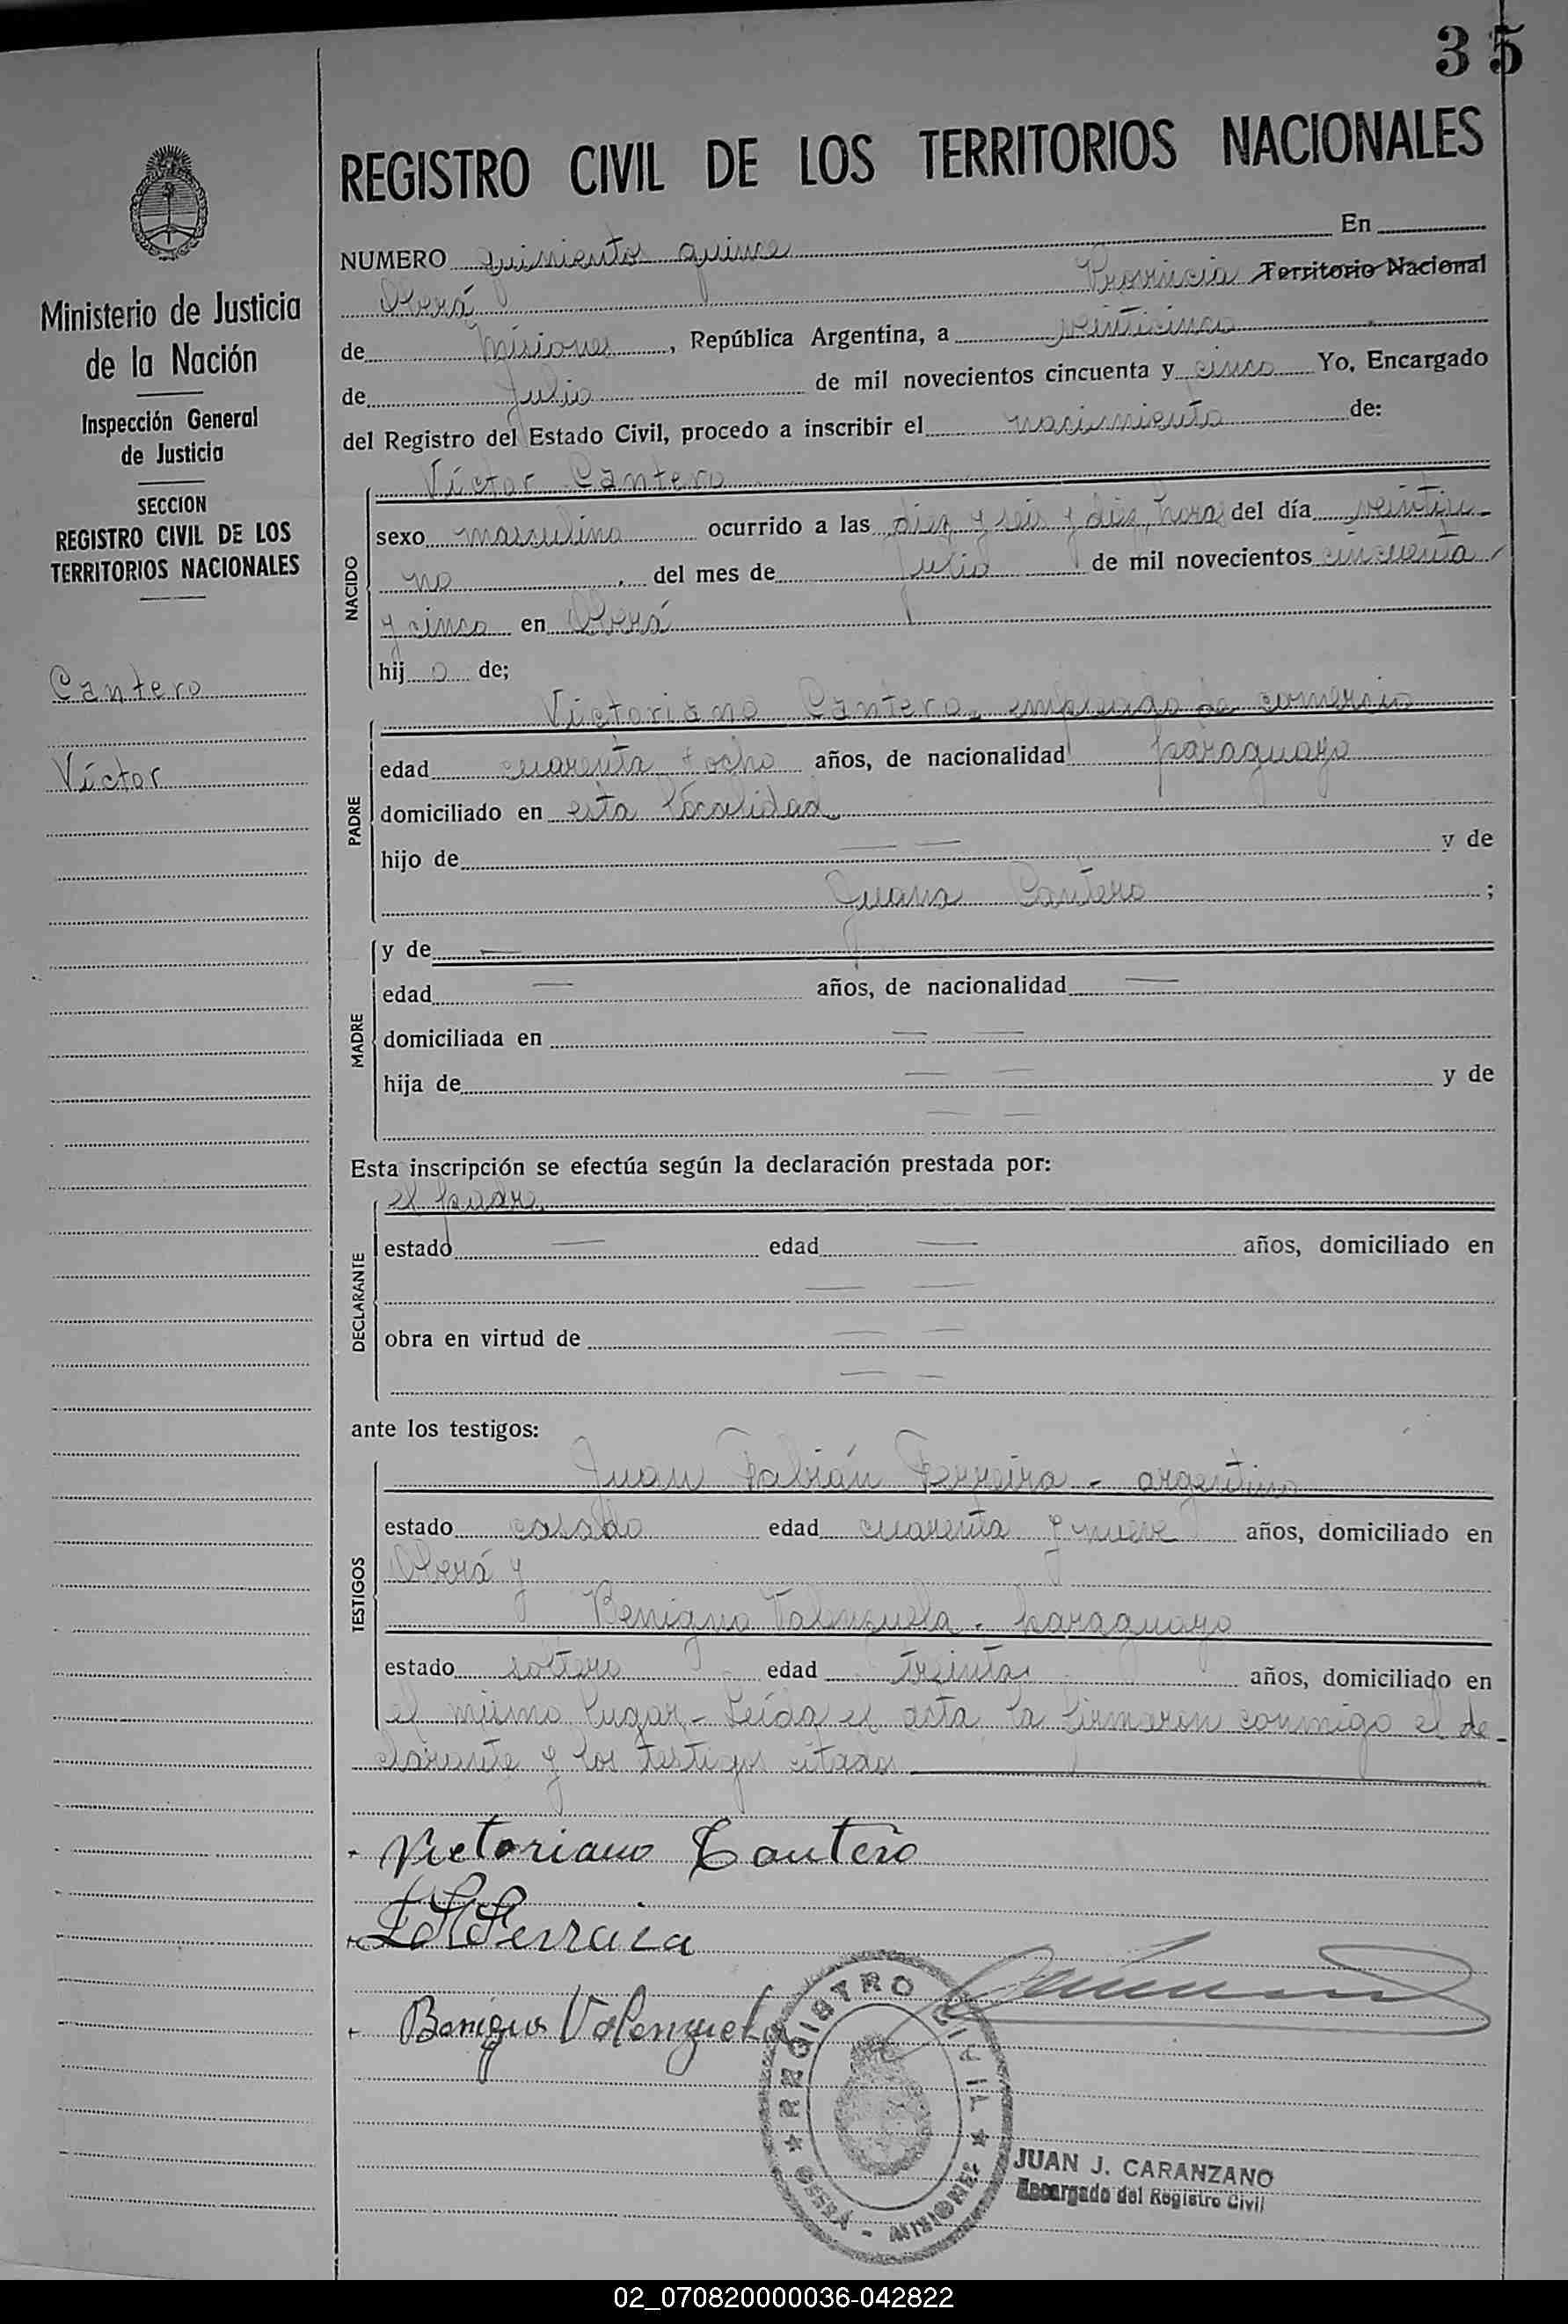 35
REGISTRO CIVIL DE LOS TERRITORIOS NACIONALES
Ministerio de Justicia
de la Nación
Inspección General
de Justicia
SECCION
REGISTRO CIVIL DE LOS
TERRITORIOS NACIONALES
Cantero
Víctor
NUMERO quinientos quince En
Oberá Provincia Territorio Nacional
de Misiones, República Argentina, a veinticinco
de Julio de mil novecientos cincuenta y cinco Yo, Encargado
del Registro del Estado Civil, procedo a inscribir el nacimiento de:
NACIDO
Víctor Cantero
sexo masculino ocurrido a las diez y seis y diez horas del día veintiu-
no, del mes de julio de mil novecientos cincuenta
y cinco en Oberá
hijo de;
PADRE
Victoriano Cantero, empleado de comercio
edad cuarenta y ocho años, de nacionalidad paraguayo
domiciliado en esta localidad
hijo de — — y de
Juana Cantero ;
MADRE
y de —
edad — años, de nacionalidad —
domiciliada en — —
hija de — — y de
— —
Esta inscripción se efectúa según la declaración prestada por:
DECLARANTE
el padre.
estado — edad — años, domiciliado en
— —
obra en virtud de — —
— —
ante los testigos:
TESTIGOS
Juan Fabián Ferreira - argentino
estado casado edad cuarenta y nueve años, domiciliado en
Oberá y
Benigno Valenzuela - paraguayo
estado soltero edad treinta años, domiciliado en
el mismo lugar - Leída el acta la firmaron conmigo el de-
clarante y los testigos citados
Victoriano Cantero
Ferraira
Benigno Valenzuela
REGISTRO CIVIL
OBERÁ - MISIONES
JUAN J. CARANZANO
Encargado del Registro Civil
02_070820000036-042822